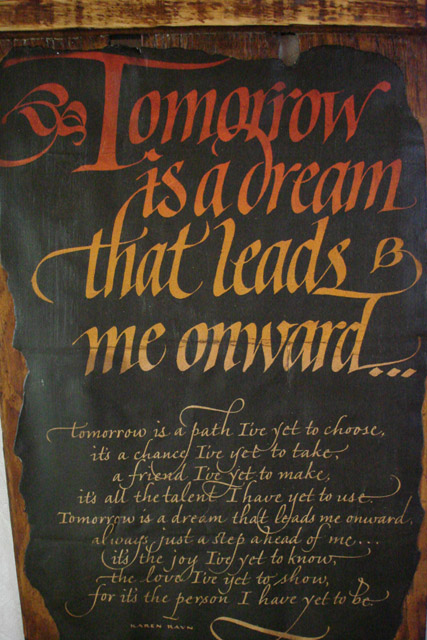 Tomorrow
is a dream
that leads
me onward...
tomorrow is a path I've yet to choose,
it's a chance I've yet to take,
a friend I've yet to make,
it's all the talent I have yet to use.
Tomorrow is a dream that leads me onward,
always just a step ahead of me...
it's the joy I've yet to know,
the love I've yet to show,
for it's the person I have yet to be.
KAREN RAVN